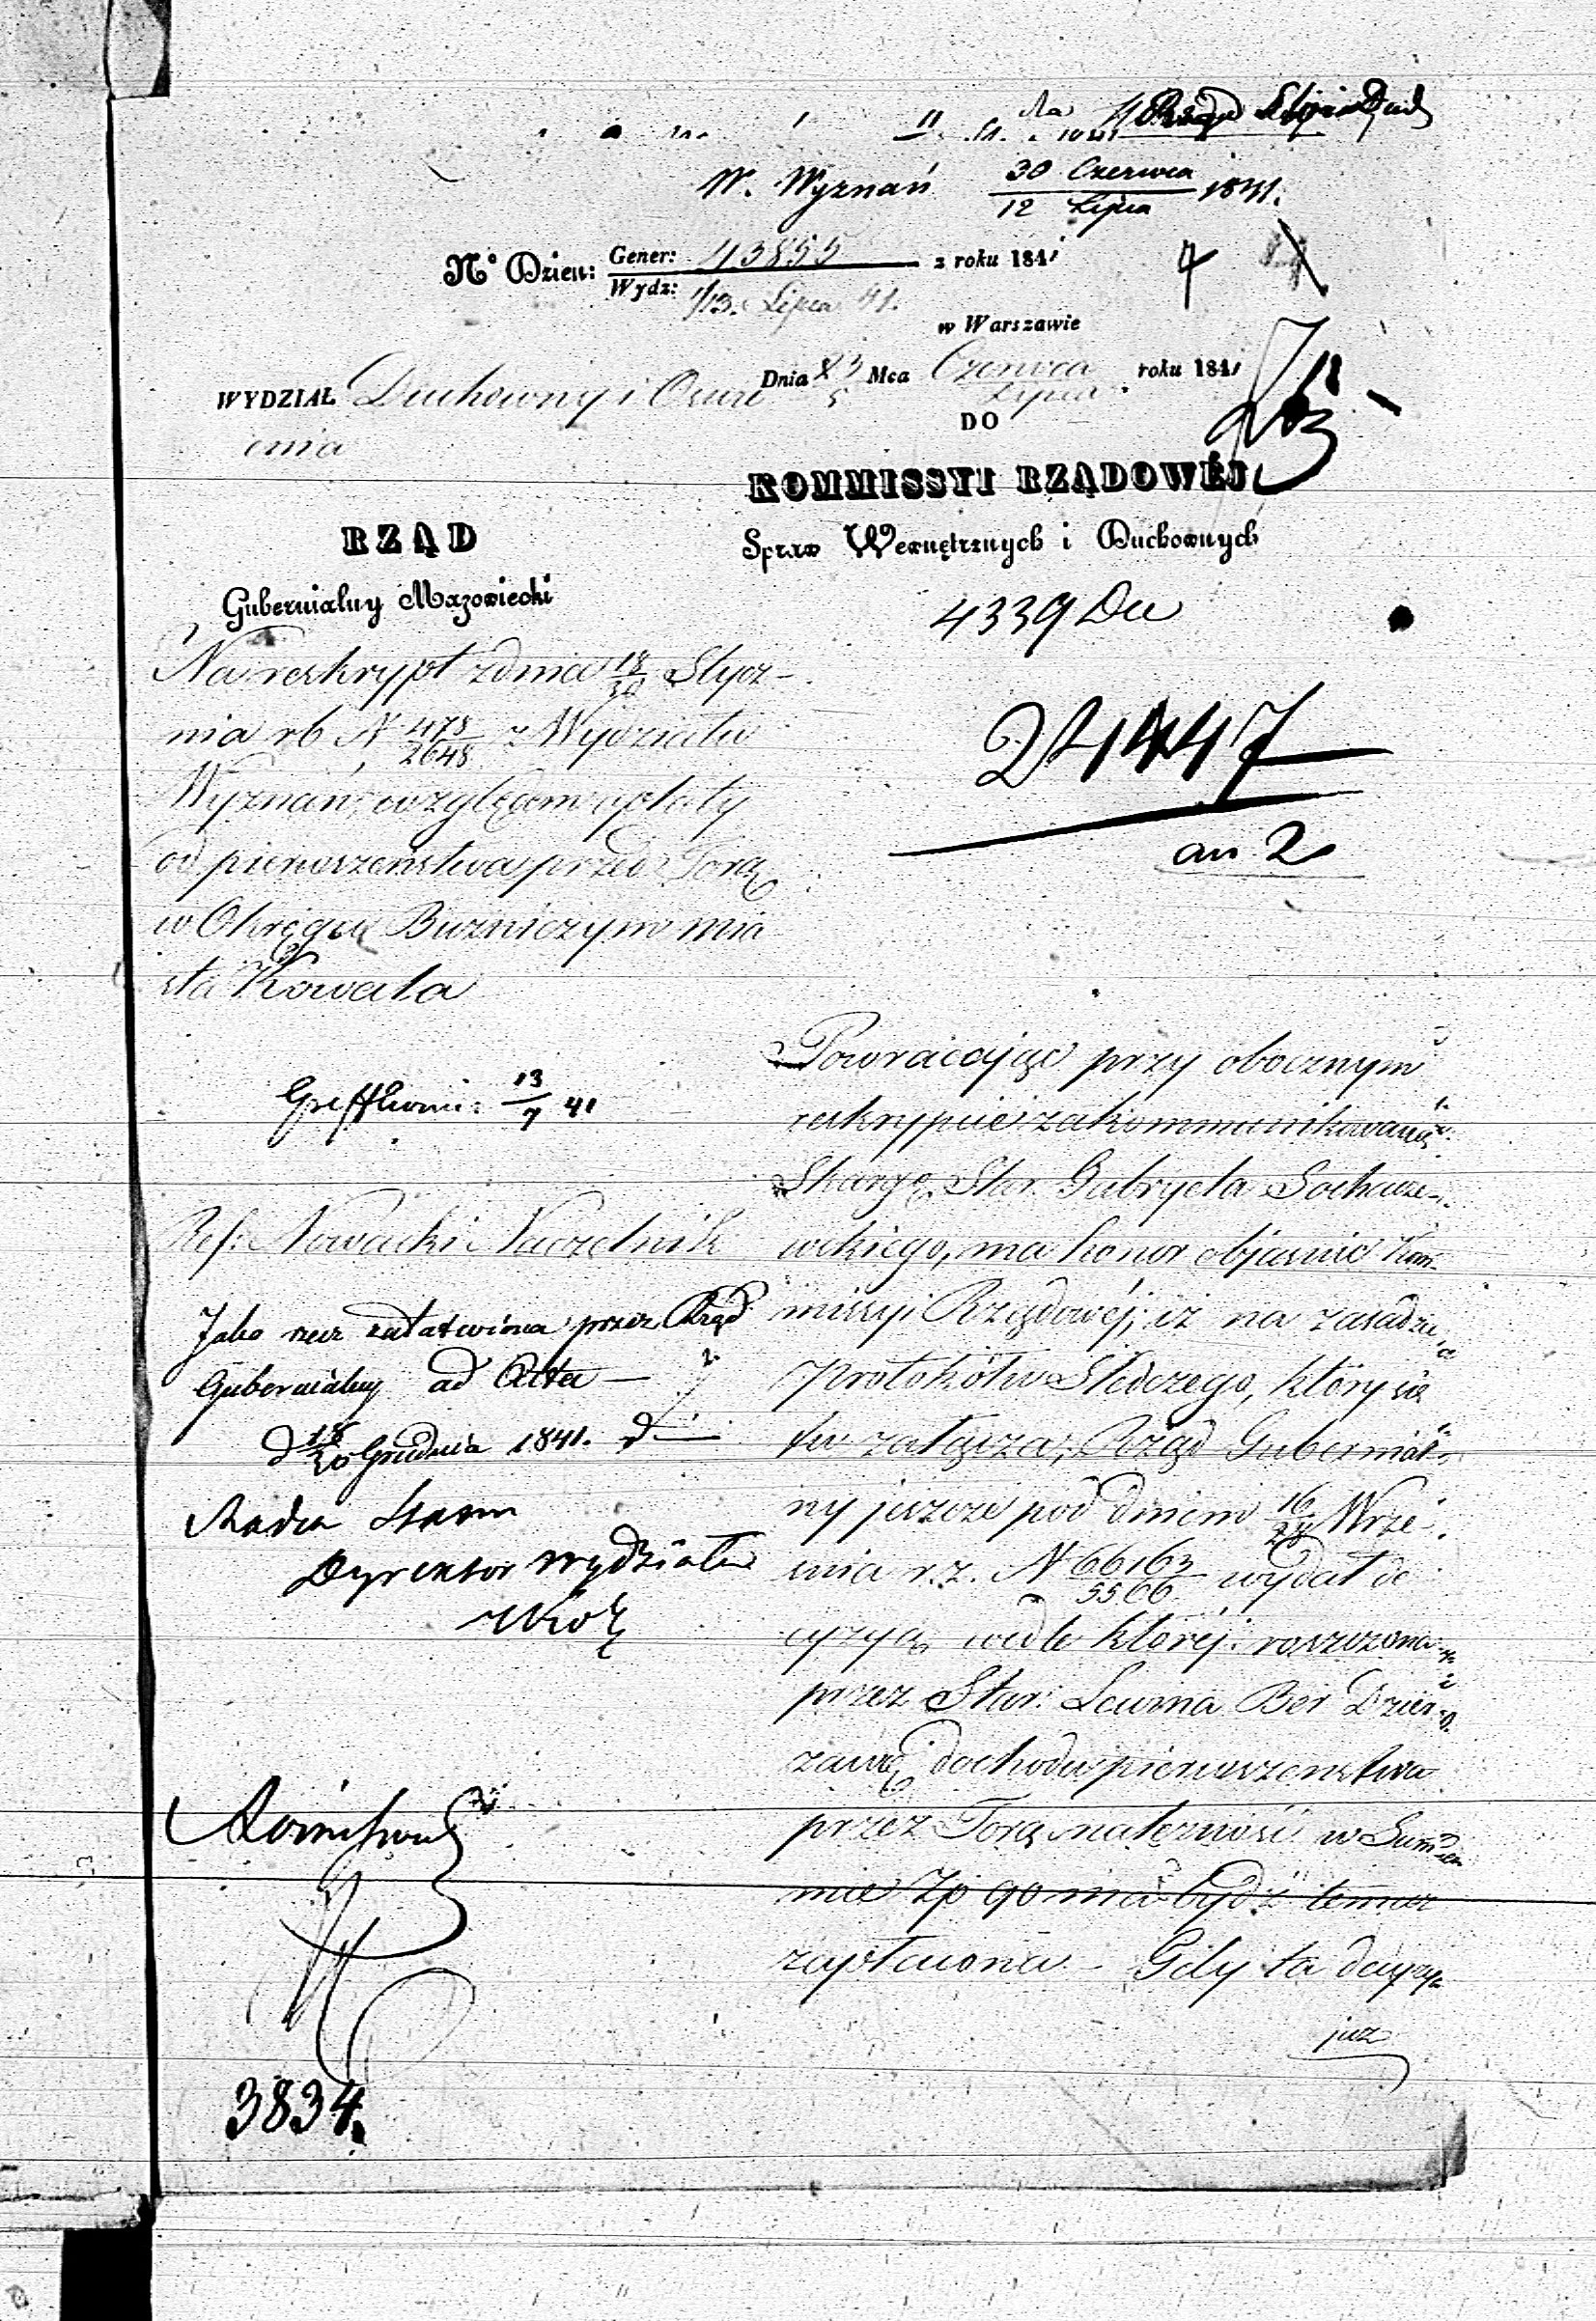 W. Wyznań 30 Czerwca / 12 Lipca 1841.
N° Dzien: Gener: 43855 / Wydz: z roku 1841
1/13. Lipca 41.
w Warszawie
WYDZIAŁ Duchowny i Oświe Dnia 23 / 5 Mca Czerwca / Lipca roku 1841
cenia
DO
KOMMISSYI RZĄDOWÉJ
Spraw Wewnętrznych i Duchownych
RZĄD
Gubernialny Mazowiecki
4339 Du
Na reskrypt z dnia 18/30 Stycz-
nia rb N 478/2648 z Wydziału
Wyznań, względem opłaty
od pierwszeństwa przed Torą
w Okręgu Bużniczym mia
sta Kowala
21447
an 2
13/7 41
Ref: Nowacki Naczelnik
Jako rzecz załatwiona przez Rząd
Gubernialny ad Acta —
d 18/30 Grudnia 1841.
Radca Stanu
Dyrektor Wydziału
3834.
Powracając przy obocznym
reskrypcie zakommunikowaną
Skargę Star. Gabryela Sochacze-
wskiego, ma honor objaśnić Kom-
missyi Rządowéj, iż na zasadzie
Protokółu Śledczego, który się
tu załącza, Rząd Gubernial-
ny jeszcze pod dniem 16/28 Wrze-
śnia r.z. N 66163/5566 wydał de
cyzyą wedle któréj roszczona
przez Star: Lewina Ber Dzier-
zawcę dochodu pierwszeństwa
przez Torą należność w Sum-
mie Zp 90 ma być temuż
zapłacona — Gdy ta decyzya
już